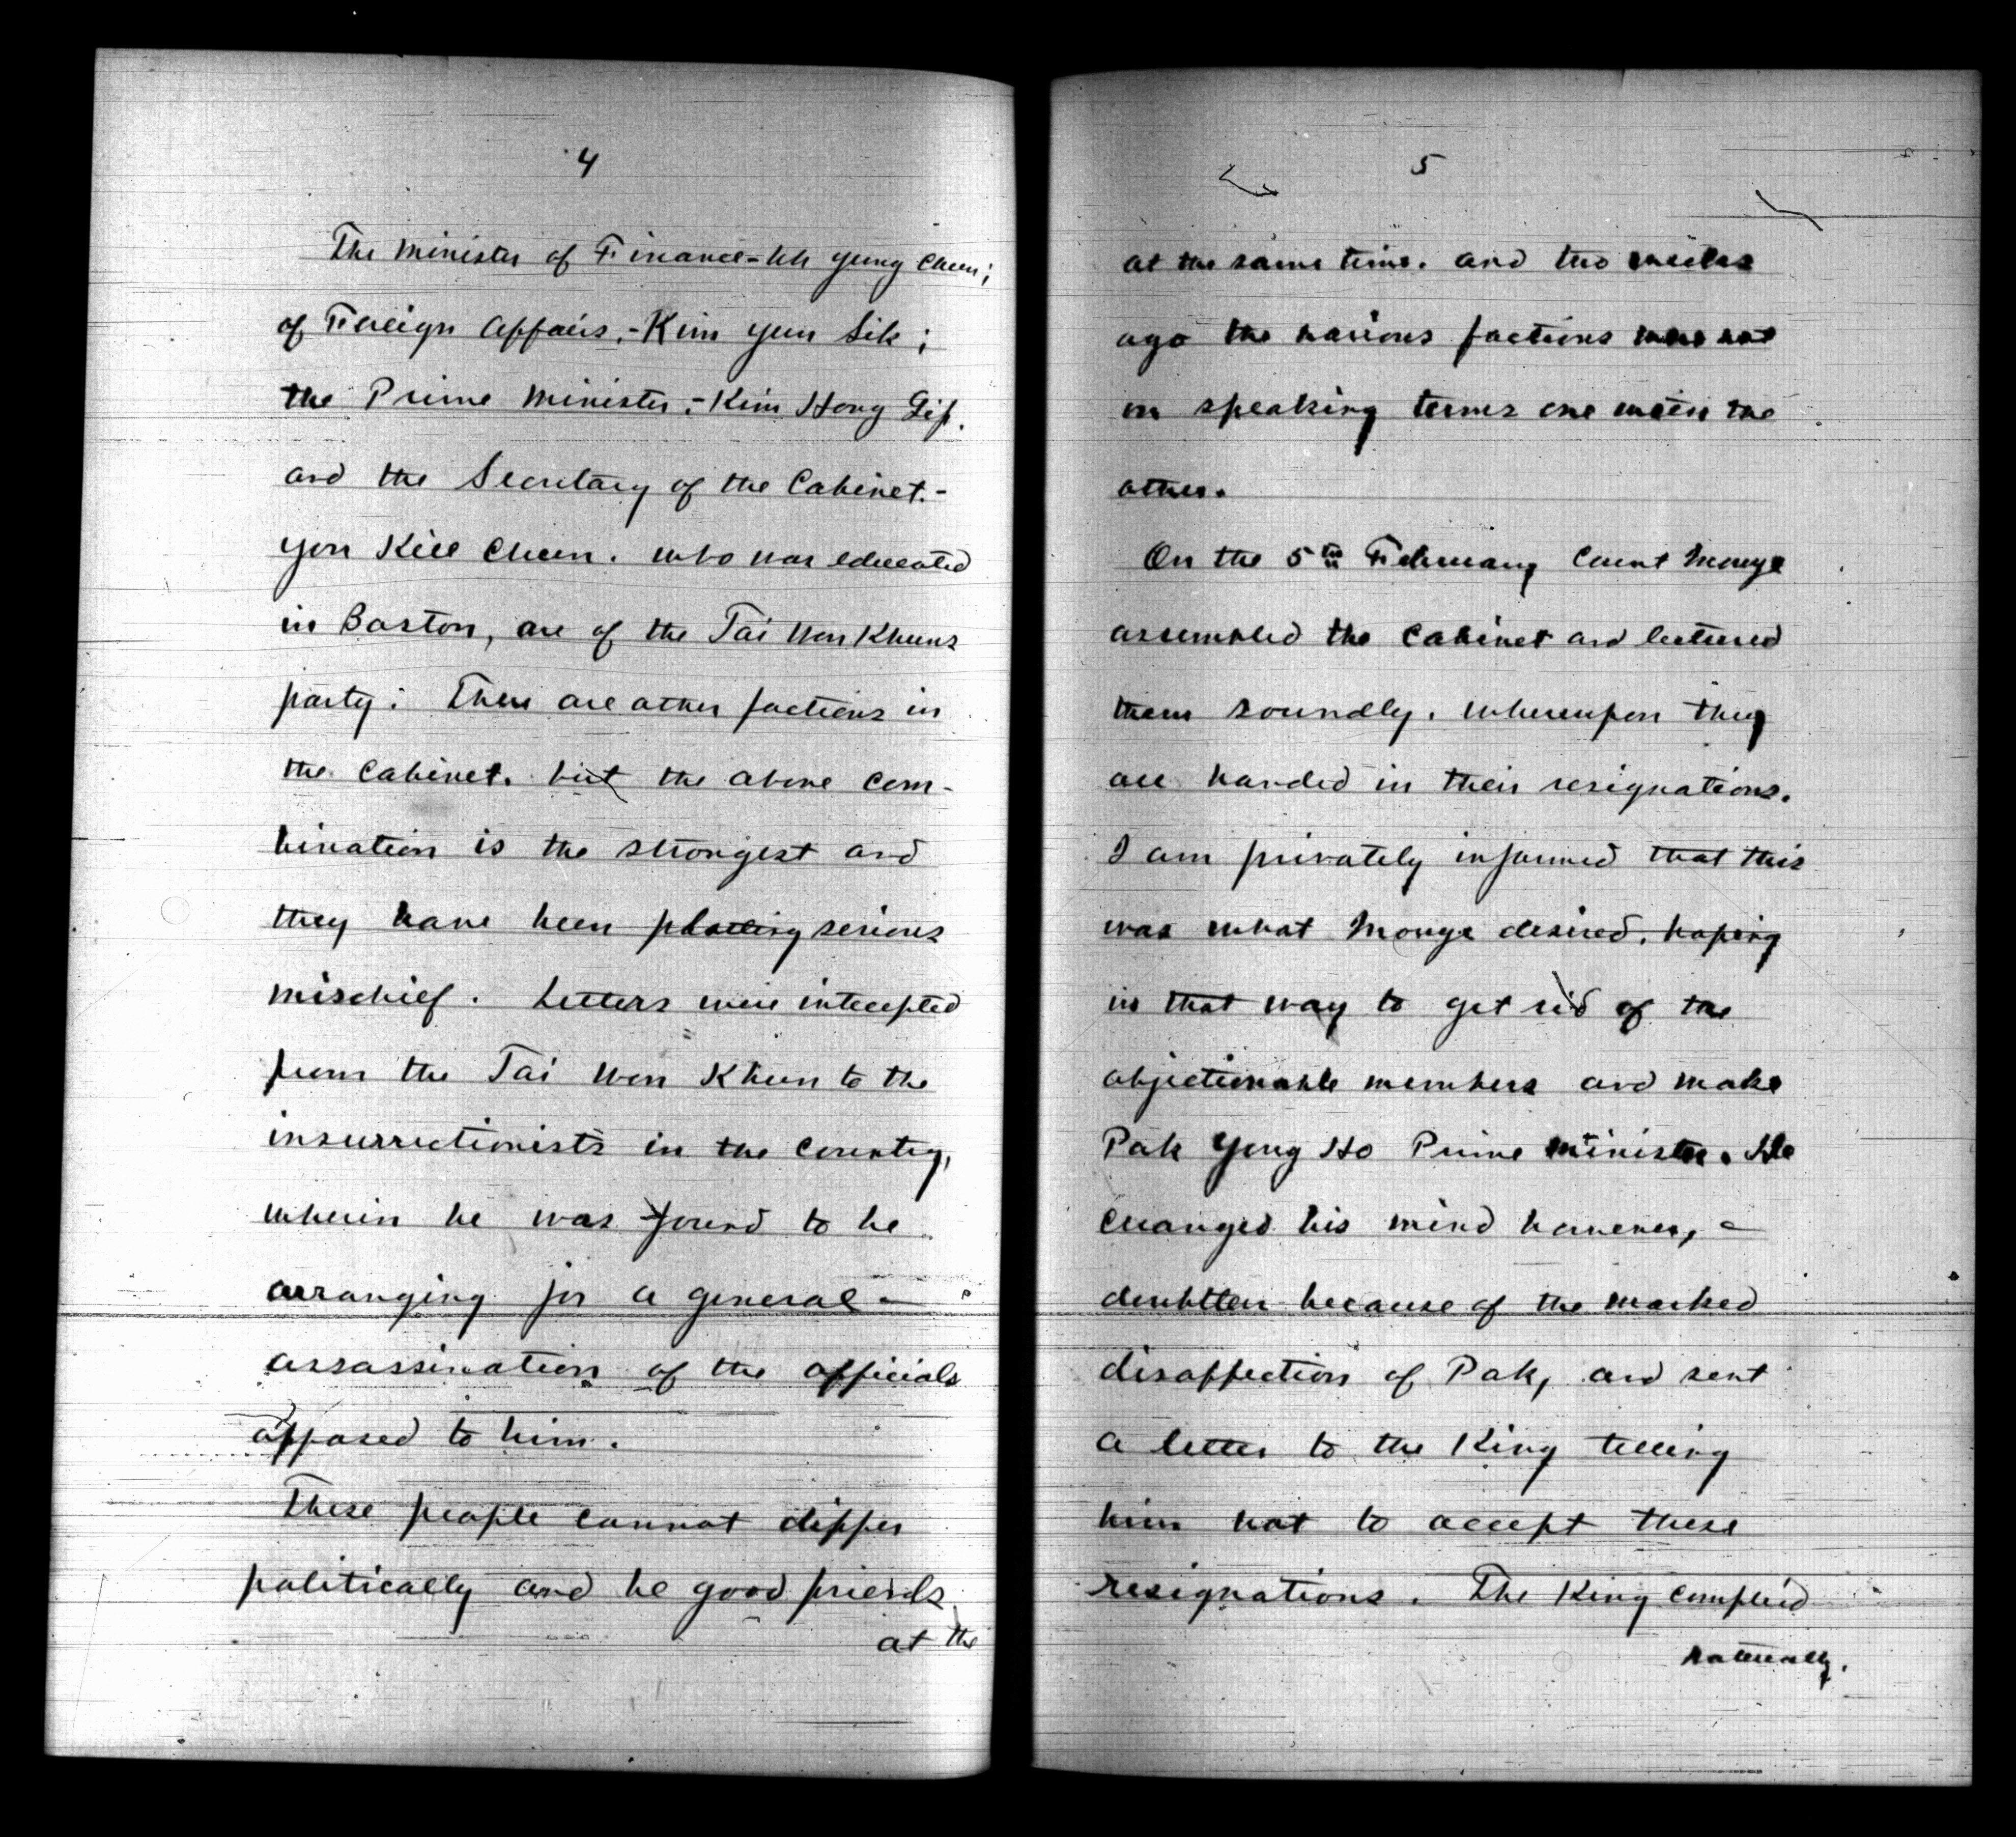 4
The Minister of Finance - Uh Yung Chun;
of Foreign Affairs,- Kim Yun Sik;
the Prime Minister,- Kim Hong Gip,
and the Secretary of the Cabinet.-
You Kill Chun. who was educated
in Boston, are of the Tai Won Khuns
party: There are other factions in
the Cabinet. but the above com-
bination is the strongest and
they have been plotting serious
mischief. Letters were intercepted
from the Tai Won Khun to the
insurrectionists in the country,
wherein he was found to be
arranging for a general -
assassination of the officials
opposed to him.
These people cannot differ
politically and be good friends
at the
5
at the same time. and two weeks
ago the various factions were not
on speaking terms one with the
other.
On the 5th February Count Inouye
assembled the Cabinet and lectured
them soundly. whereupon they
all handed in their resignations.
I am privately informed that this
was what Inouye desired, hoping
in that way to get rid of the
objectionable members and make
Pak Yong Ho Prime Minister. He
changed his mind however, -
doubtless because of the marked
disaffection of Pak, and sent
a letter to the King telling
him not to accept these
resignations. The King complied
naturally.